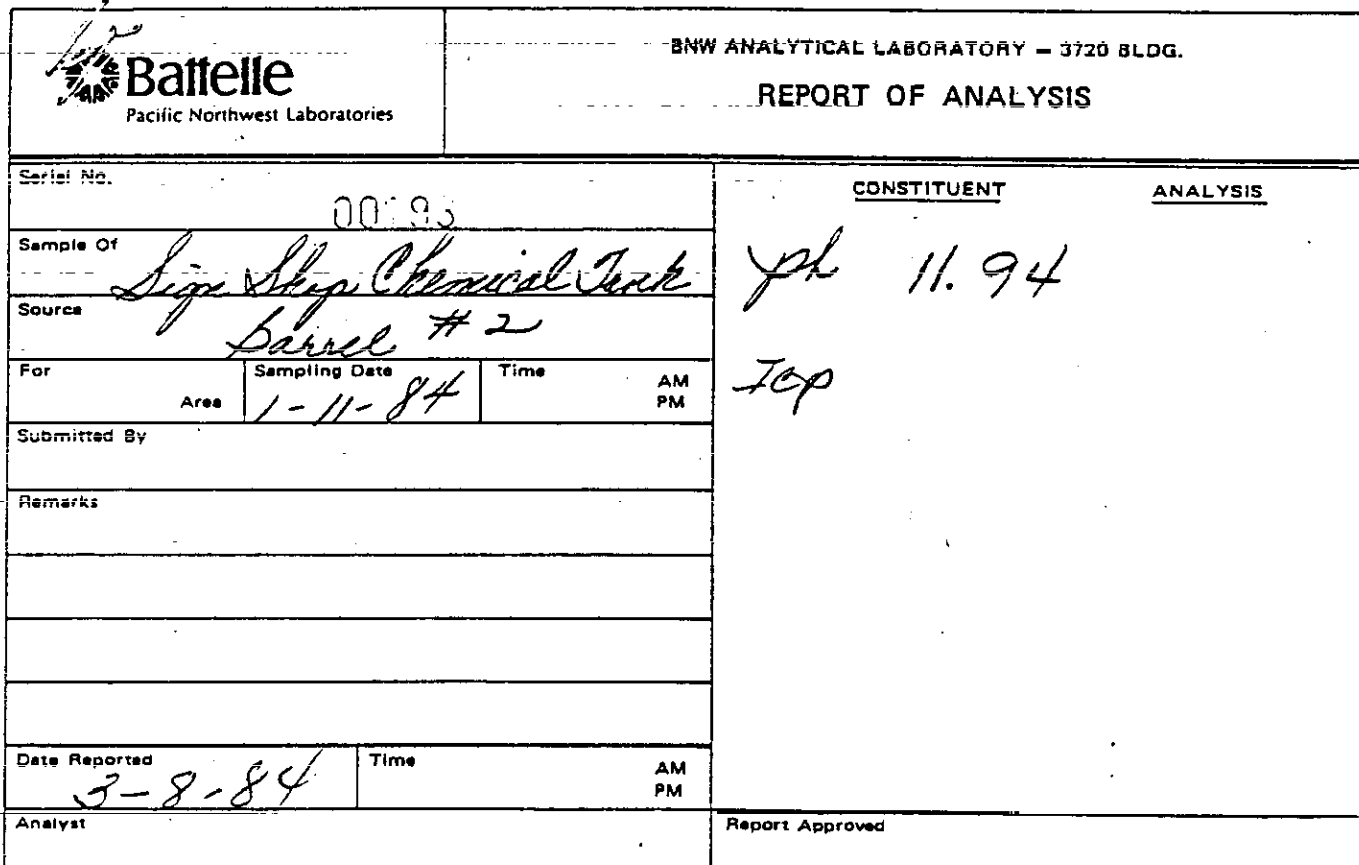 Battelle
Pacific Northwest Laboratories
BNW ANALYTICAL LABORATORY – 3720 BLDG.
REPORT OF ANALYSIS
Serial No.
Sample Of Sign Shop Chemical Tank
Source Barrel # 2
For Area
Sampling Date 1-11-84
Time AM PM
Submitted By
Remarks
Date Reported 3-8-84
Time AM PM
Analyst
CONSTITUENT ANALYSIS
ph 11.94
Icp
Report Approved